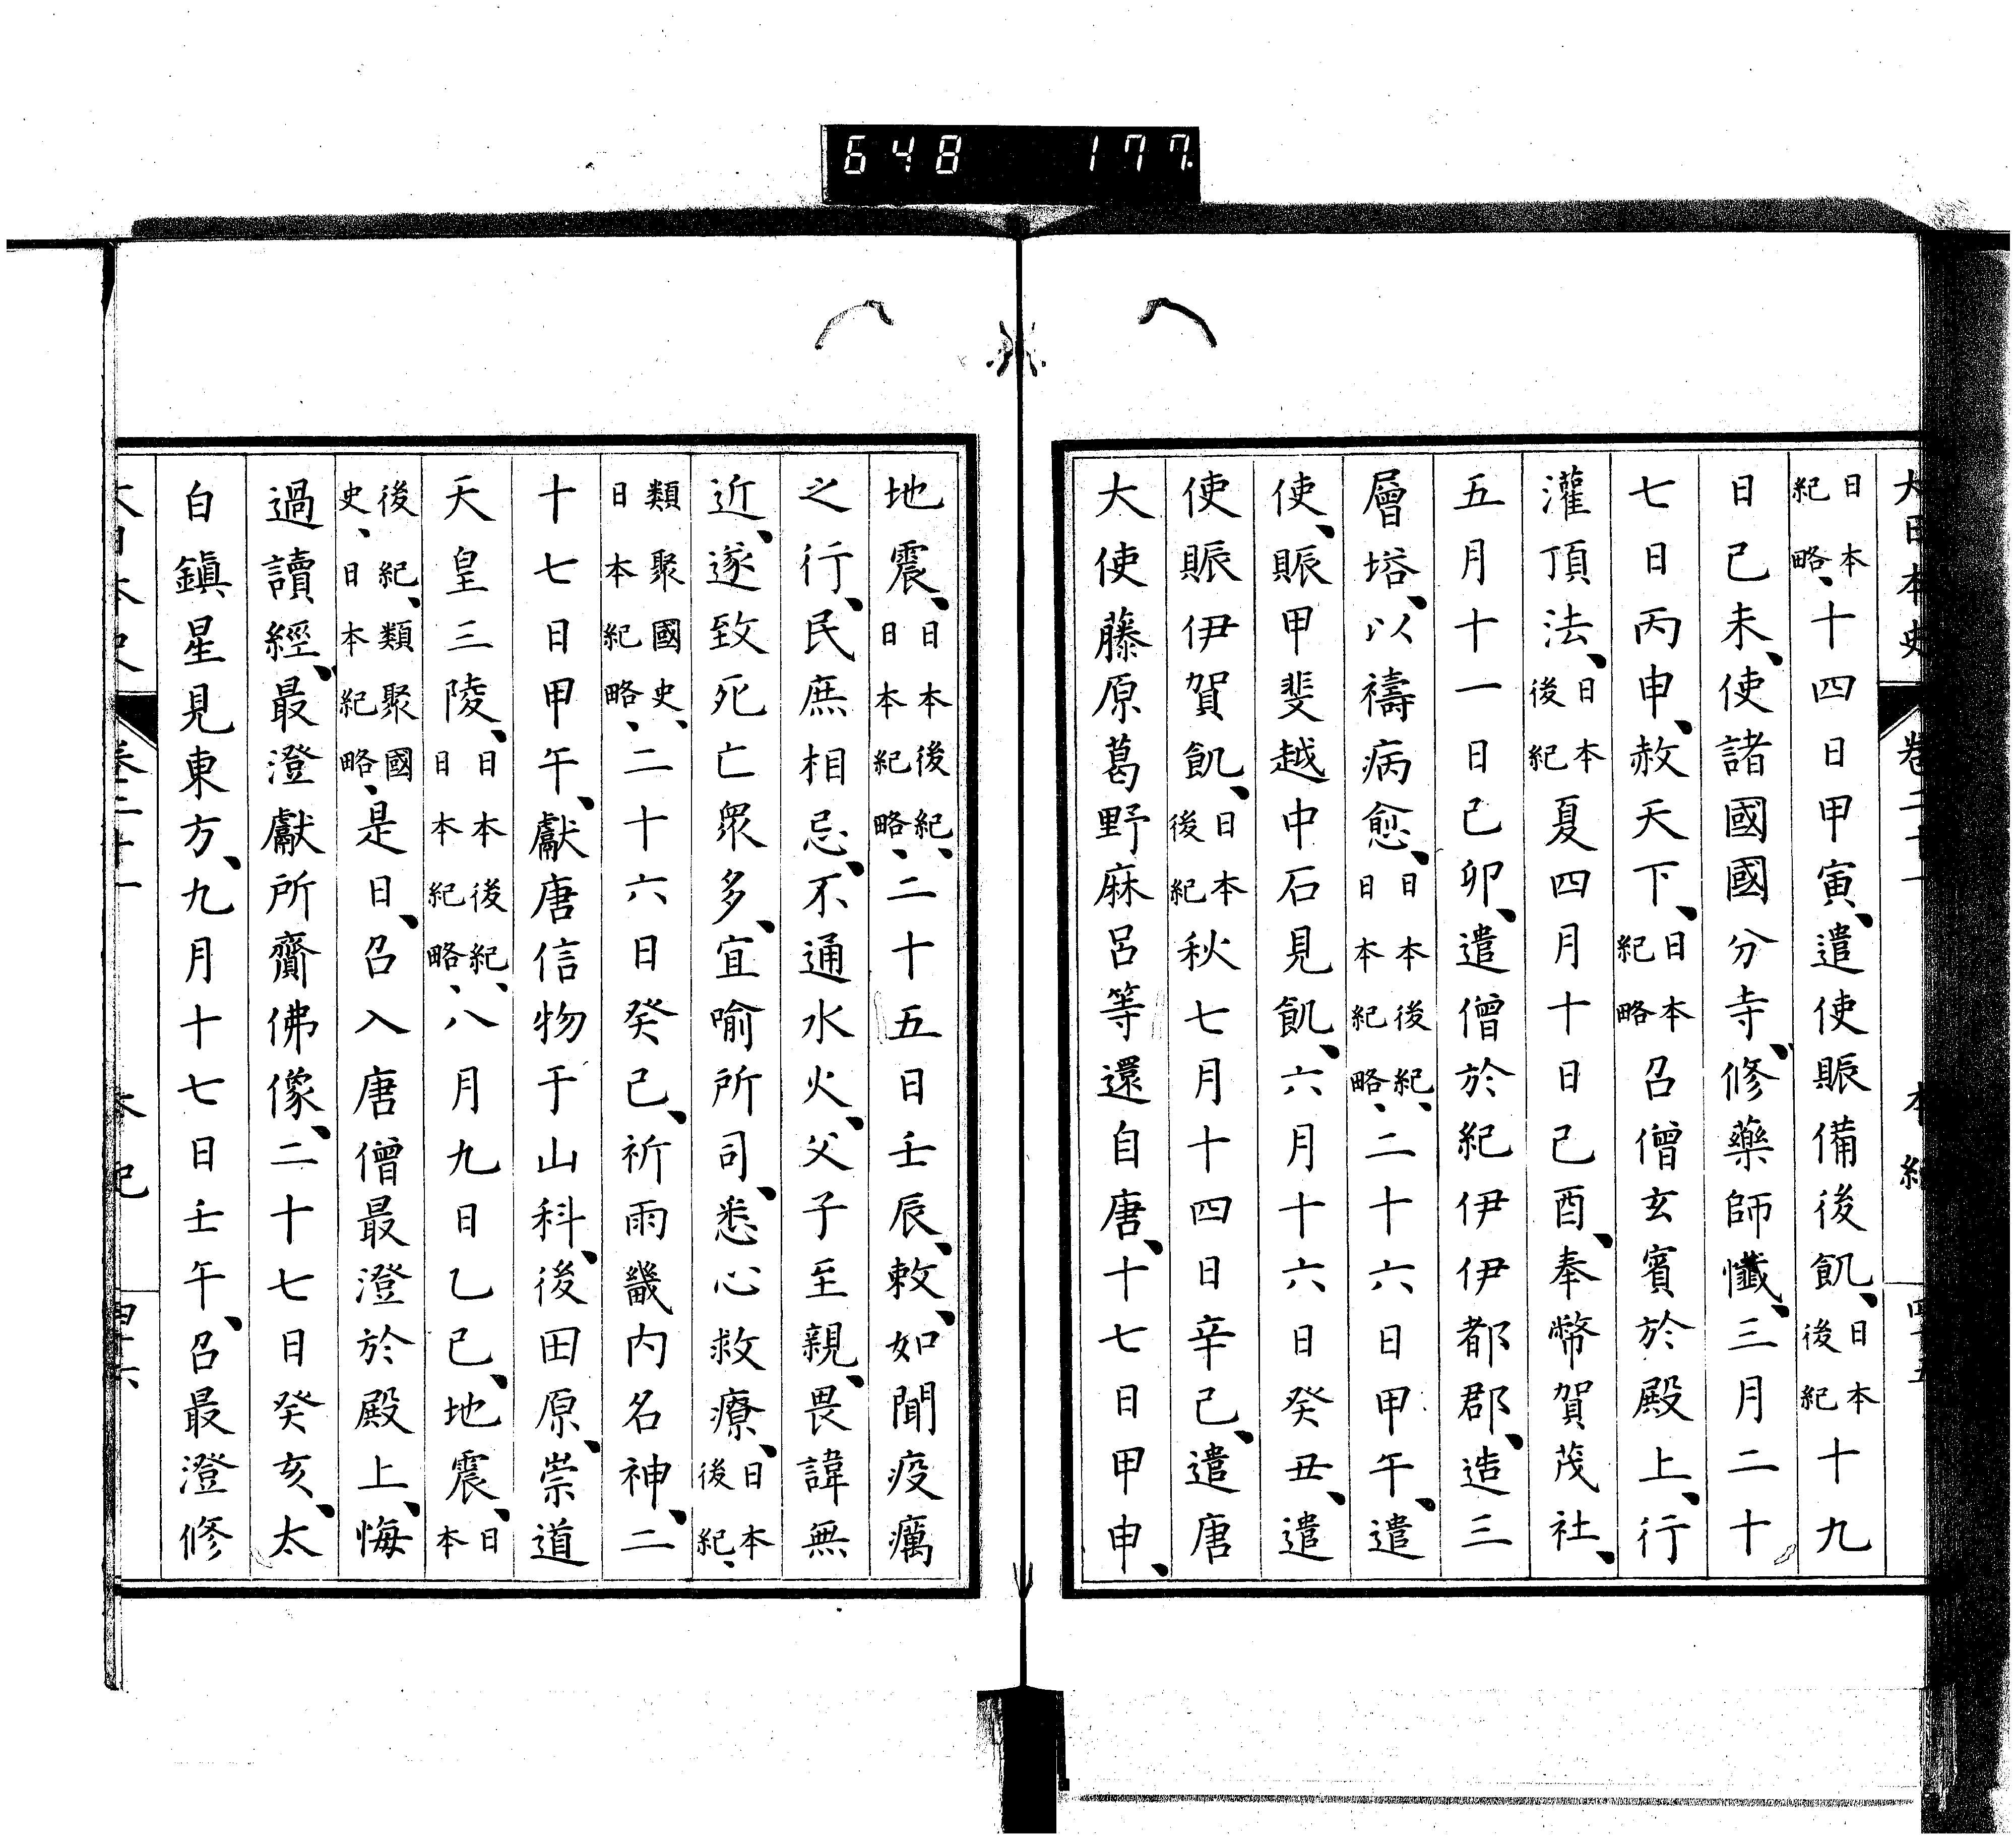 648 177
大日本史 卷二十一 本紀 四十五
日本紀略、十四日甲寅、遣使賑備後飢、日本後紀十九
日己未、使諸國國分寺、修藥師懺、三月二十
七日丙申、赦天下、日本紀略召僧玄賓於殿上、行
灌頂法、日本後紀夏四月十日己酉、奉幣賀茂社、
五月十一日己卯、遣僧於紀伊伊都郡、造三
層塔、以禱病愈、日本後紀、日本紀略、二十六日甲午、遣
使、賑甲斐越中石見飢、六月十六日癸丑、遣
使賑伊賀飢、日本後紀秋七月十四日辛己、遣唐
大使藤原葛野麻呂等還自唐、十七日甲申、
地震、日本後紀、日本紀略、二十五日壬辰、敕、如聞疫癘
之行、民庶相忌、不通水火、父子至親、畏諱無
近、遂致死亡眾多、宜喻所司、悉心救療、日本後紀、
類聚國史、日本紀略、二十六日癸己、祈雨畿內名神、二
十七日甲午、獻唐信物于山科、後田原、崇道
天皇三陵、日本後紀、日本紀略、八月九日乙己、地震、日本
後紀、類聚國史、日本紀略、是日、召入唐僧最澄於殿上、悔
過讀經、最澄獻所齎佛像、二十七日癸亥、太
白鎭星見東方、九月十七日壬午、召最澄修
大日本史 卷二十一 本紀 四十六